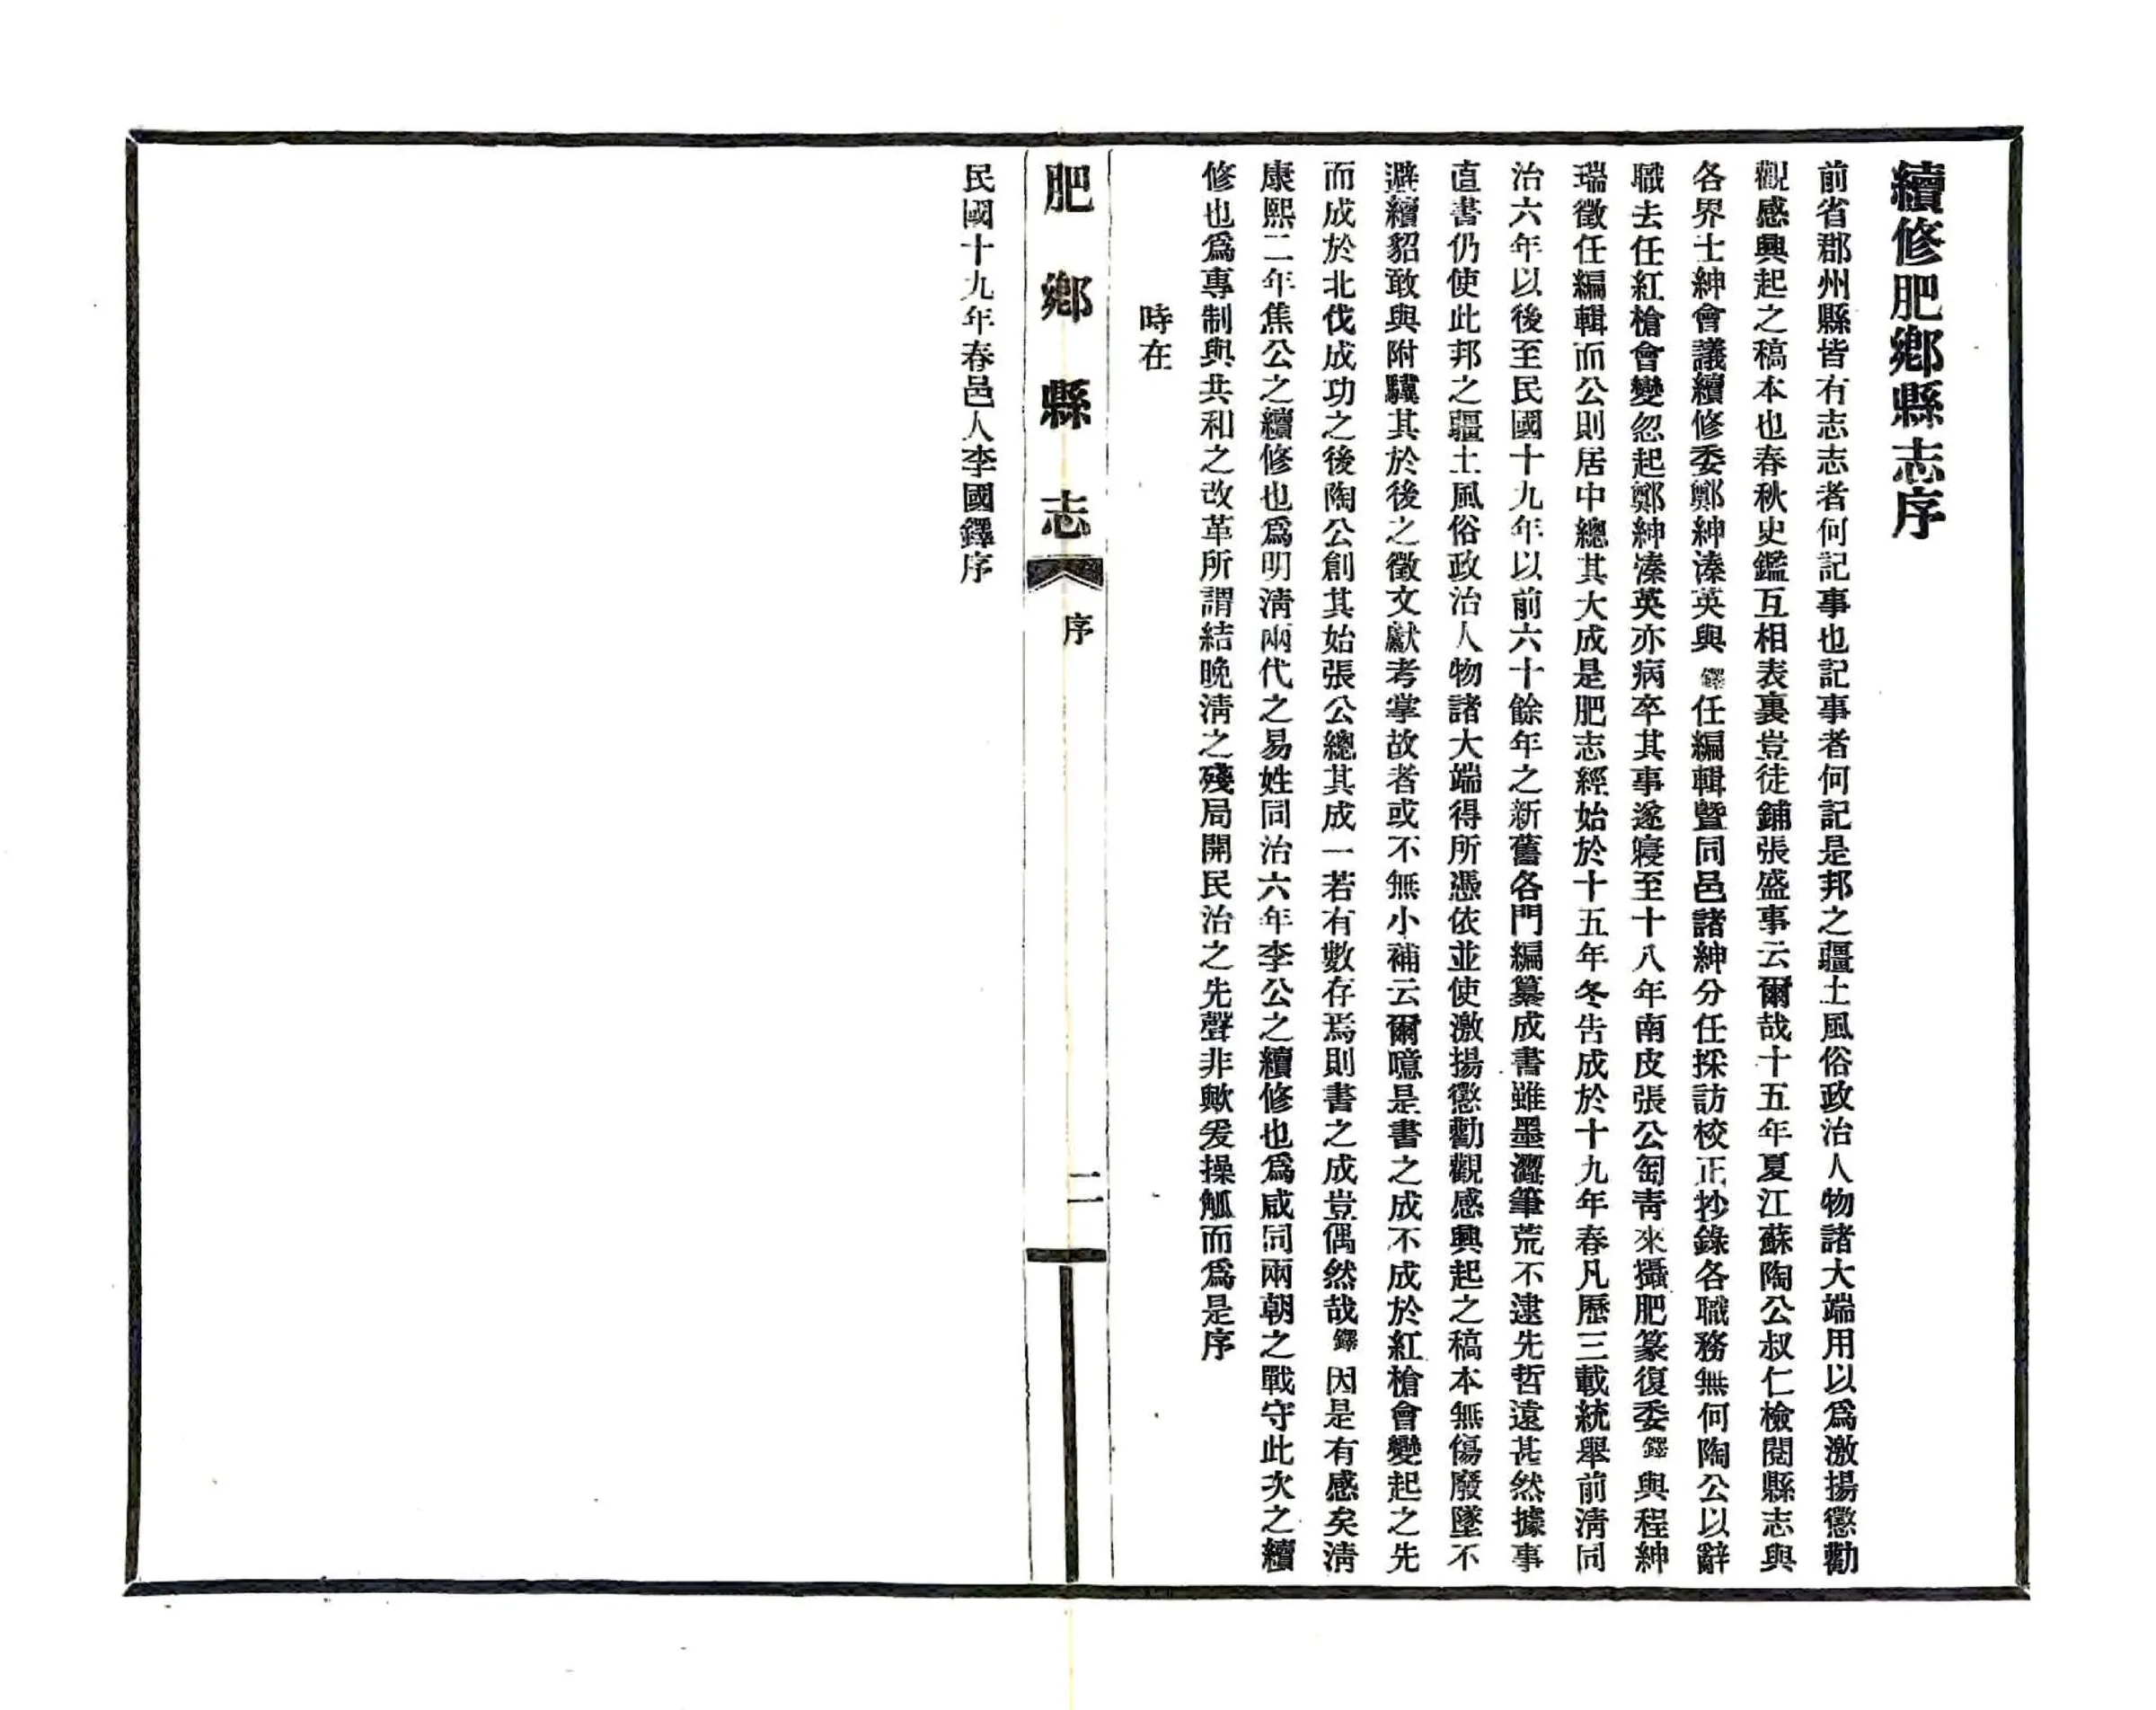 續修肥鄉縣志序
前省郡州縣皆有志志者何記事也記事者何記是邦之疆土風俗政治人物諸大端用以爲激揚懲勸
觀感興起之稿本也春秋史鑑互相表裏豈徒鋪張盛事云爾哉十五年夏江蘇陶公叔仁檢閱縣志與
各界士紳會議續修委鄭紳溱英與鐸任編輯暨同邑諸紳分任採訪校正抄錄各職務無何陶公以辭
職去任紅槍會變忽起鄭紳溱英亦病卒其事遂寢至十八年南皮張公匋青來攝肥篆復委鐸與程紳
瑞徵任編輯而公則居中總其大成是肥志經始於十五年冬告成於十九年春凡歷三載統舉前淸同
治六年以後至民國十九年以前六十餘年之新舊各門編纂成書雖墨澀筆荒不逮先哲遠甚然據事
直書仍使此邦之疆土風俗政治人物諸大端得所憑依並使激揚懲勸觀感興起之稿本無傷廢墜不
避續貂敢與附驥其於後之徵文獻考掌故者或不無小補云爾噫是書之成不成於紅槍會變起之先
而成於北伐成功之後陶公創其始張公總其成一若有數存焉則書之成豈偶然哉鐸因是有感矣淸
康熙二年焦公之續修也爲明淸兩代之易姓同治六年李公之續修也爲咸同兩朝之戰守此次之續
修也爲專制與共和之改革所謂結晚淸之殘局開民治之先聲非歟爰操觚而爲是序
時在
肥鄉縣志
序
二
民國十九年春邑人李國鐸序